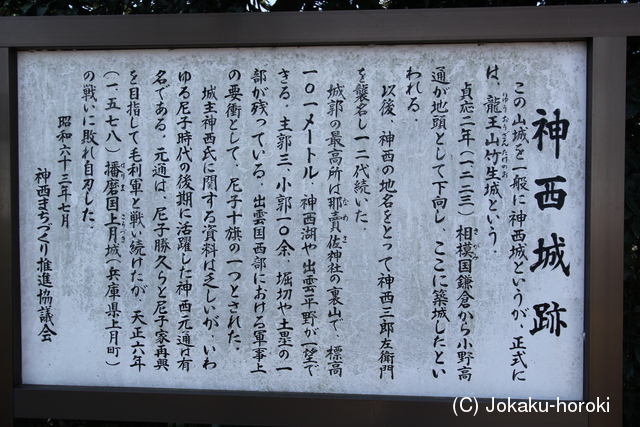 神西城跡
この山城を一般に神西城というが、正式に
は、龍王山竹生城という。
りゅうおうざんたけのお
貞応二年(一、二二三)相模国鎌倉から小野高
さがみ
通が地頭として下向し、ここに築城したとい
われる。
以後、神西の地名をとって神西三郎左衛門
を襲名し一二代続いた。
城郭の最高所は那賣佐神社の裏山で、標高
なめさ
一〇一メートル、神西湖や出雲平野が一望で
きる。主郭三、小郭一〇余、堀切や土塁の一
部が残っている。出雲国西部における軍事上
の要衝として、尼子十旗の一つとされた。
城主神西氏に関する資料は乏しいが、いわ
ゆる尼子時代の後期に活躍した神西元通は有
名である。元通は、尼子勝久らと尼子家再興
を目指して毛利軍と戦い続けたが、天正六年
(一、五七八)播磨国上月城(兵庫県上月町)
はりま こうづき
の戦いに敗れ自刃した。
昭和六十三年七月
神西まちづくり推進協議会
(C) Jokaku-horoki